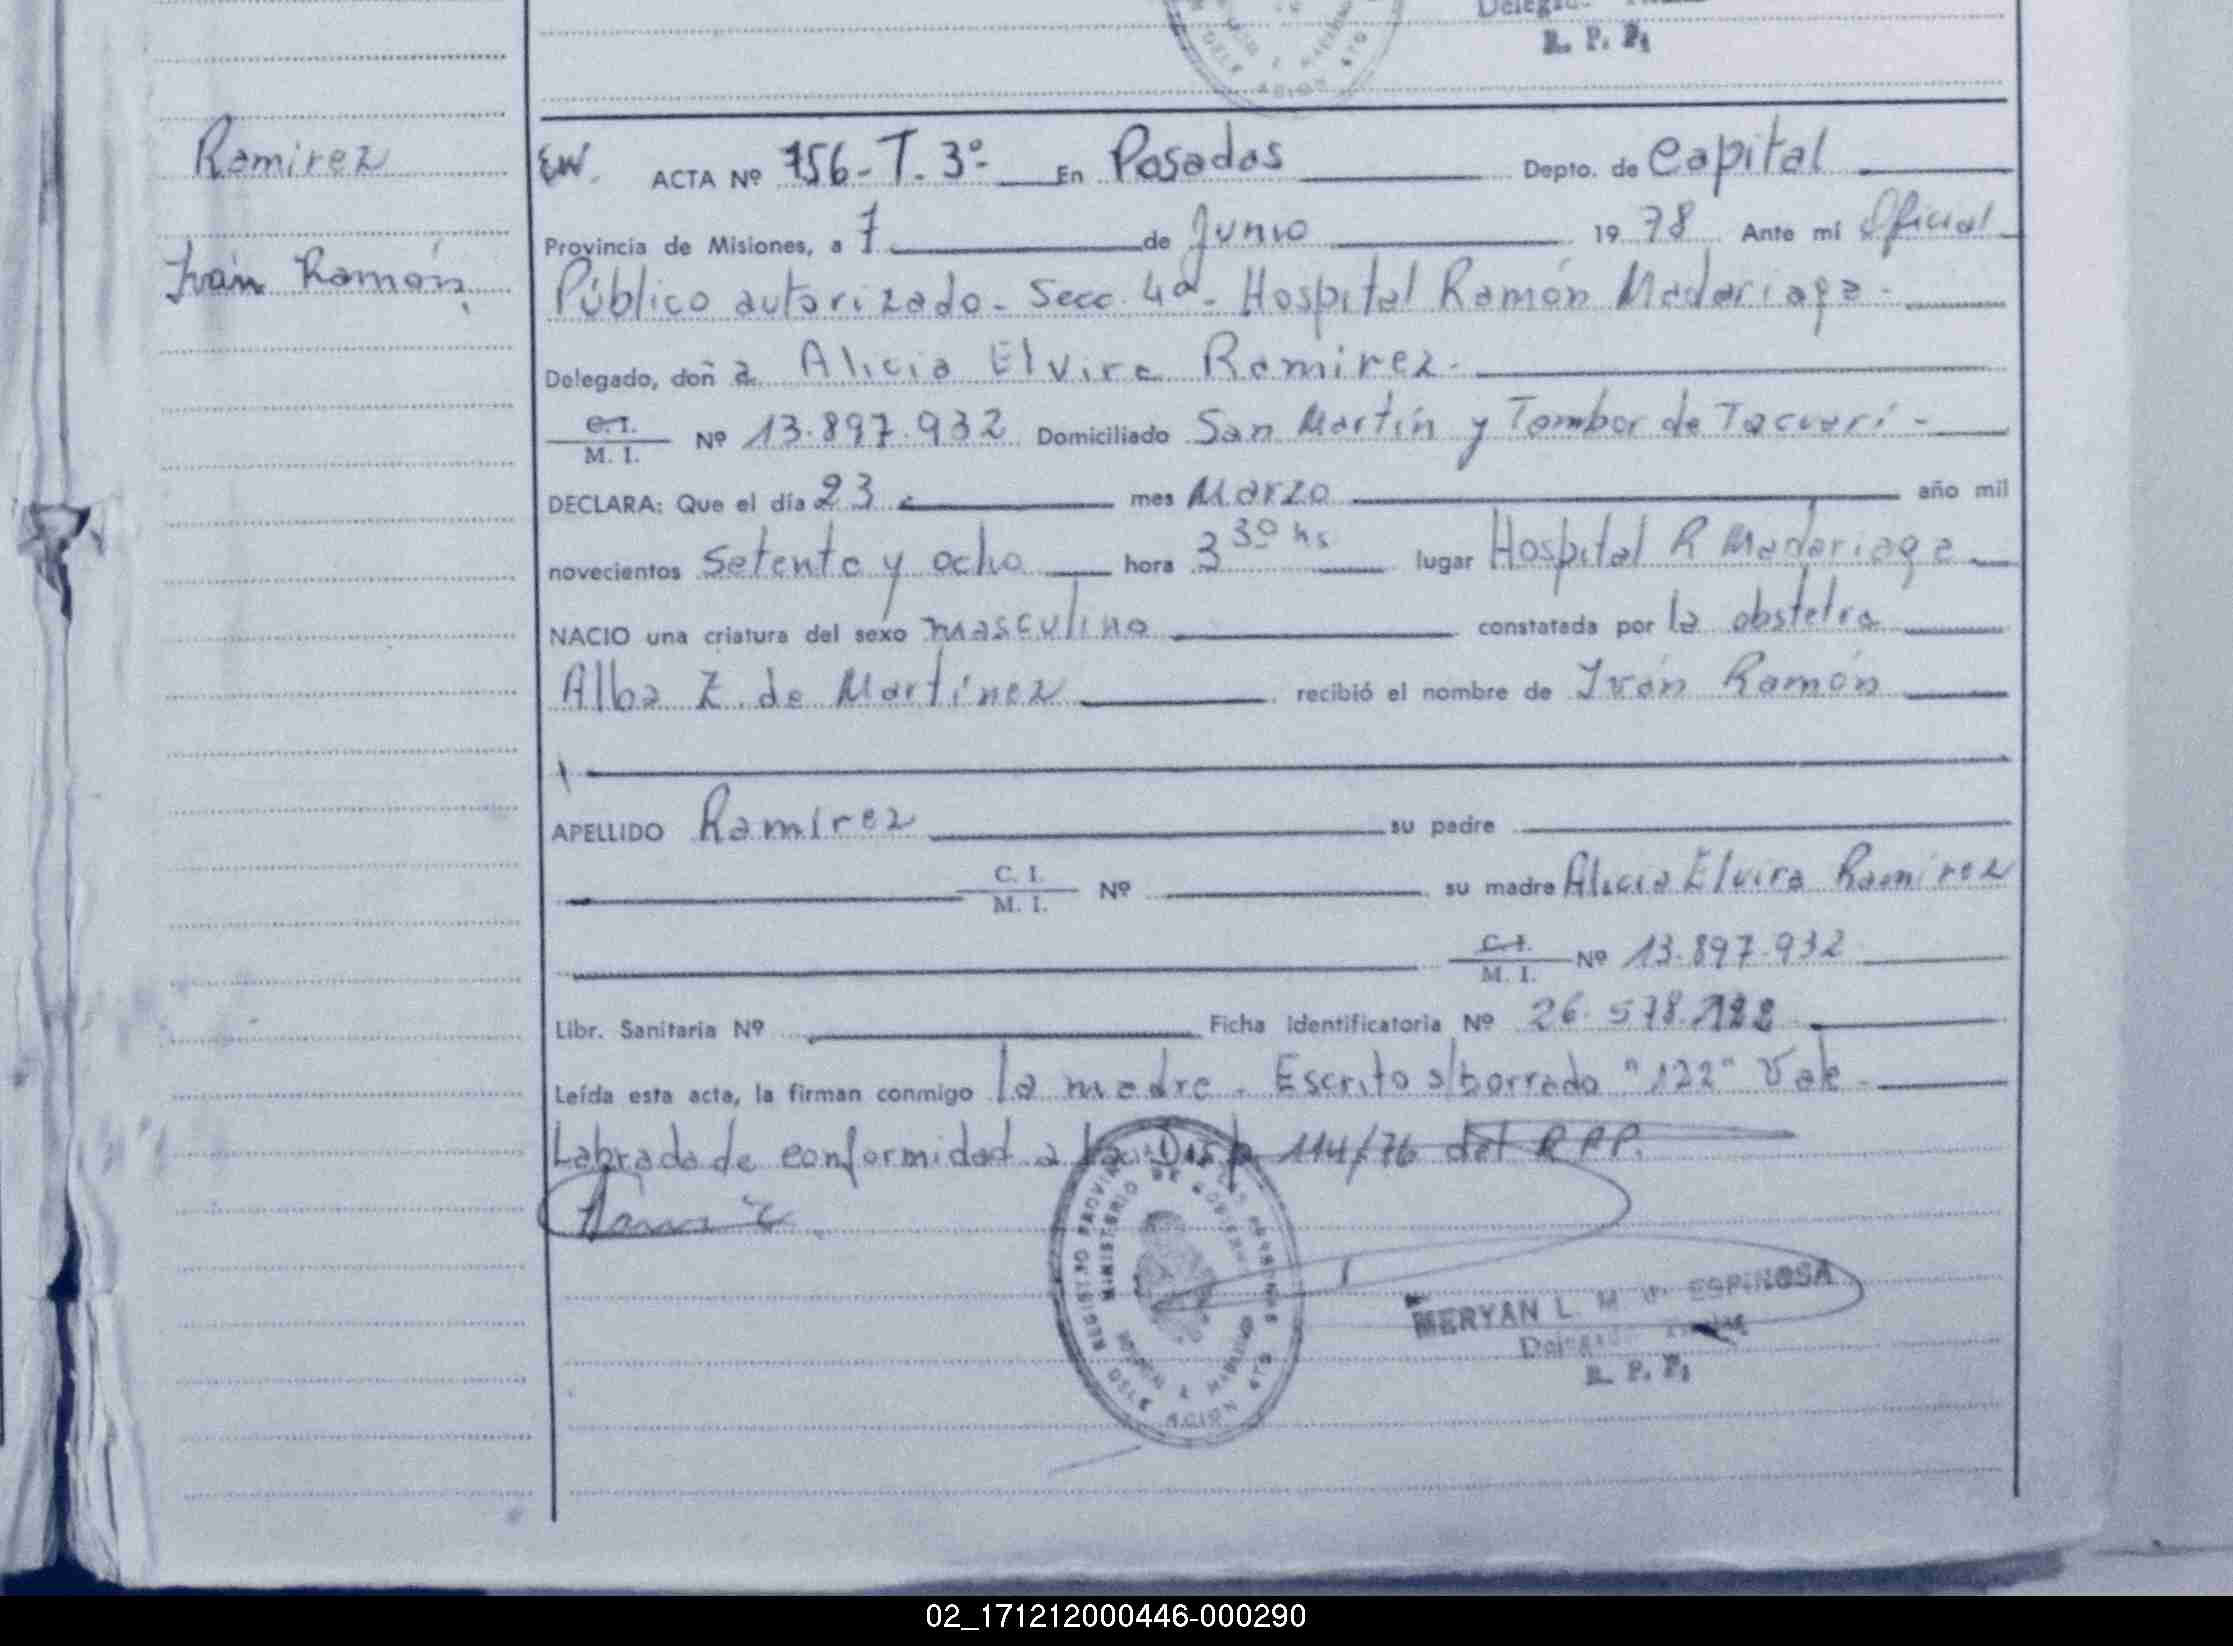 Delegado
R. P. P.
Ramirez
Iván Ramón.
ACTA Nº 756-T.3º- En Posadas Depto. de Capital
Provincia de Misiones, a 7 de Junio 1978 Ante mí Oficial
Público autorizado- Secc. 4a- Hospital Ramón Madariaga-
Delegado, doña Alicia Elvira Ramirez-
C.I.
M. I. Nº 13.897.932 Domiciliado San Martín y Tambor de Tacuarí-
DECLARA: Que el día 23 mes Marzo año mil
novecientos setenta y ocho hora 3 30 hs lugar Hospital R Madariaga
NACIO una criatura del sexo masculino constatada por la obstetra
Alba Z. de Martínez recibió el nombre de Iván Ramón
APELLIDO Ramírez su padre
C. I.
M. I. Nº su madre Alicia Elvira Ramirez
C. I.
M. I. Nº 13.897.932
Libr. Sanitaria Nº Ficha identificatoria Nº 26.578.122
Leída esta acta, la firman conmigo la madre. Escrito s/borrado "122" Vale-
Labrada de conformidad a la Disp. 114/76 del R P P.
REGISTRO PROVINCIAL DE LAS PERSONAS
MINISTERIO DE GOBIERNO
DELEGACION 4TO
MERYAN L. M ESPINOSA
Delegado
R. P. P.
02_171212000446-000290